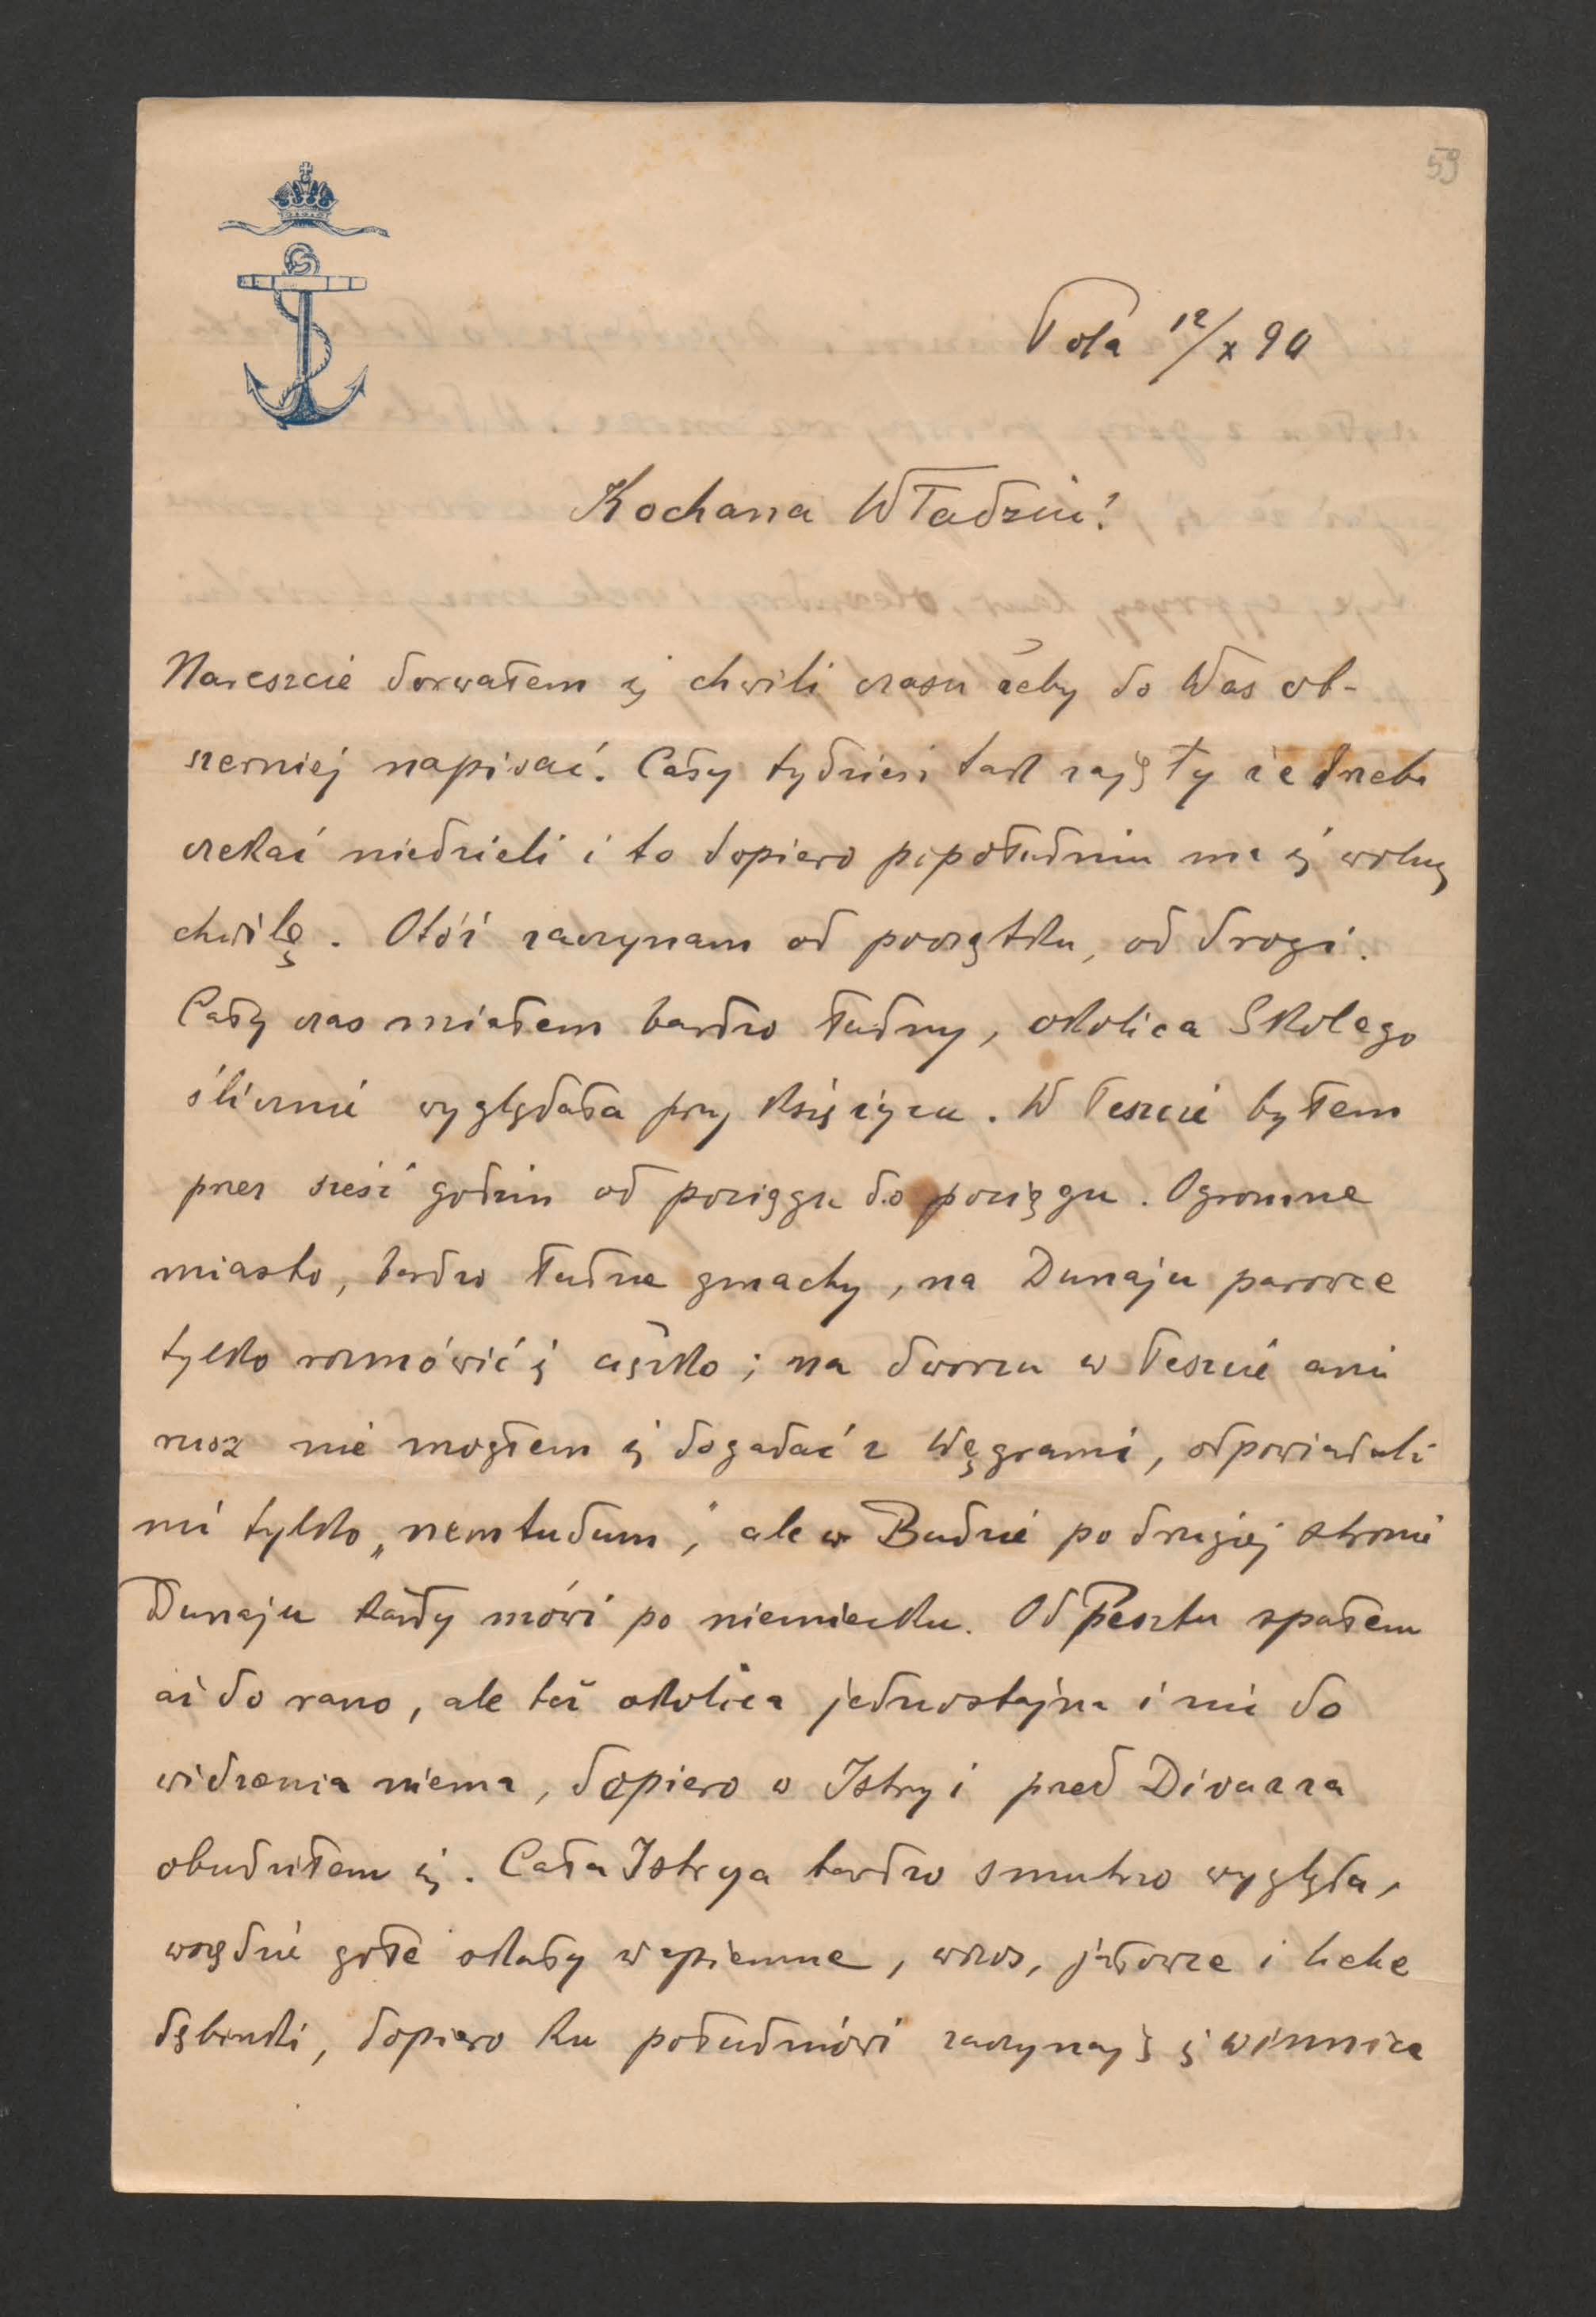 59
Pola 12/X 90
Kochana Władziu!
Nareszcie dorwałem się chwili czasu żeby do Was ob-
szerniej napisać. Cały tydzień tak zajęty że trzeba
czekać niedzieli i to dopiero popołudniu ma się wolną
chwilę. Otóż zaczynam od początku, od drogi.
Cały czas miałem bardzo ładny, okolica Skolego
ślicznie wyglądała przy księżycu. W Peszcie byłem
przez sześć godzin od pociągu do pociągu. Ogromne
miasto, bardzo ładne gmachy, na Dunaju parowce
tylko rozmówić się ciężko; na dworcu w Peszcie ani
rusz nie mogłem się dogadać z Węgrami, odpowiadali
mi tylko „nemtudum", ale w Budzie po drugiej stronie
Dunaju każdy mówi po niemiecku. Od Pesztu spałem
aż do rano, ale też okolica jednostajna i nic do
widzenia niema, dopiero w Istryi przed Divazza
obudziłem się. Cała Istrya bardzo smutno wygląda,
wszędzie gołe skały wapienne, wrzos, jałowce i liche
dębczaki, dopiero ku południowi zaczynają się winnice